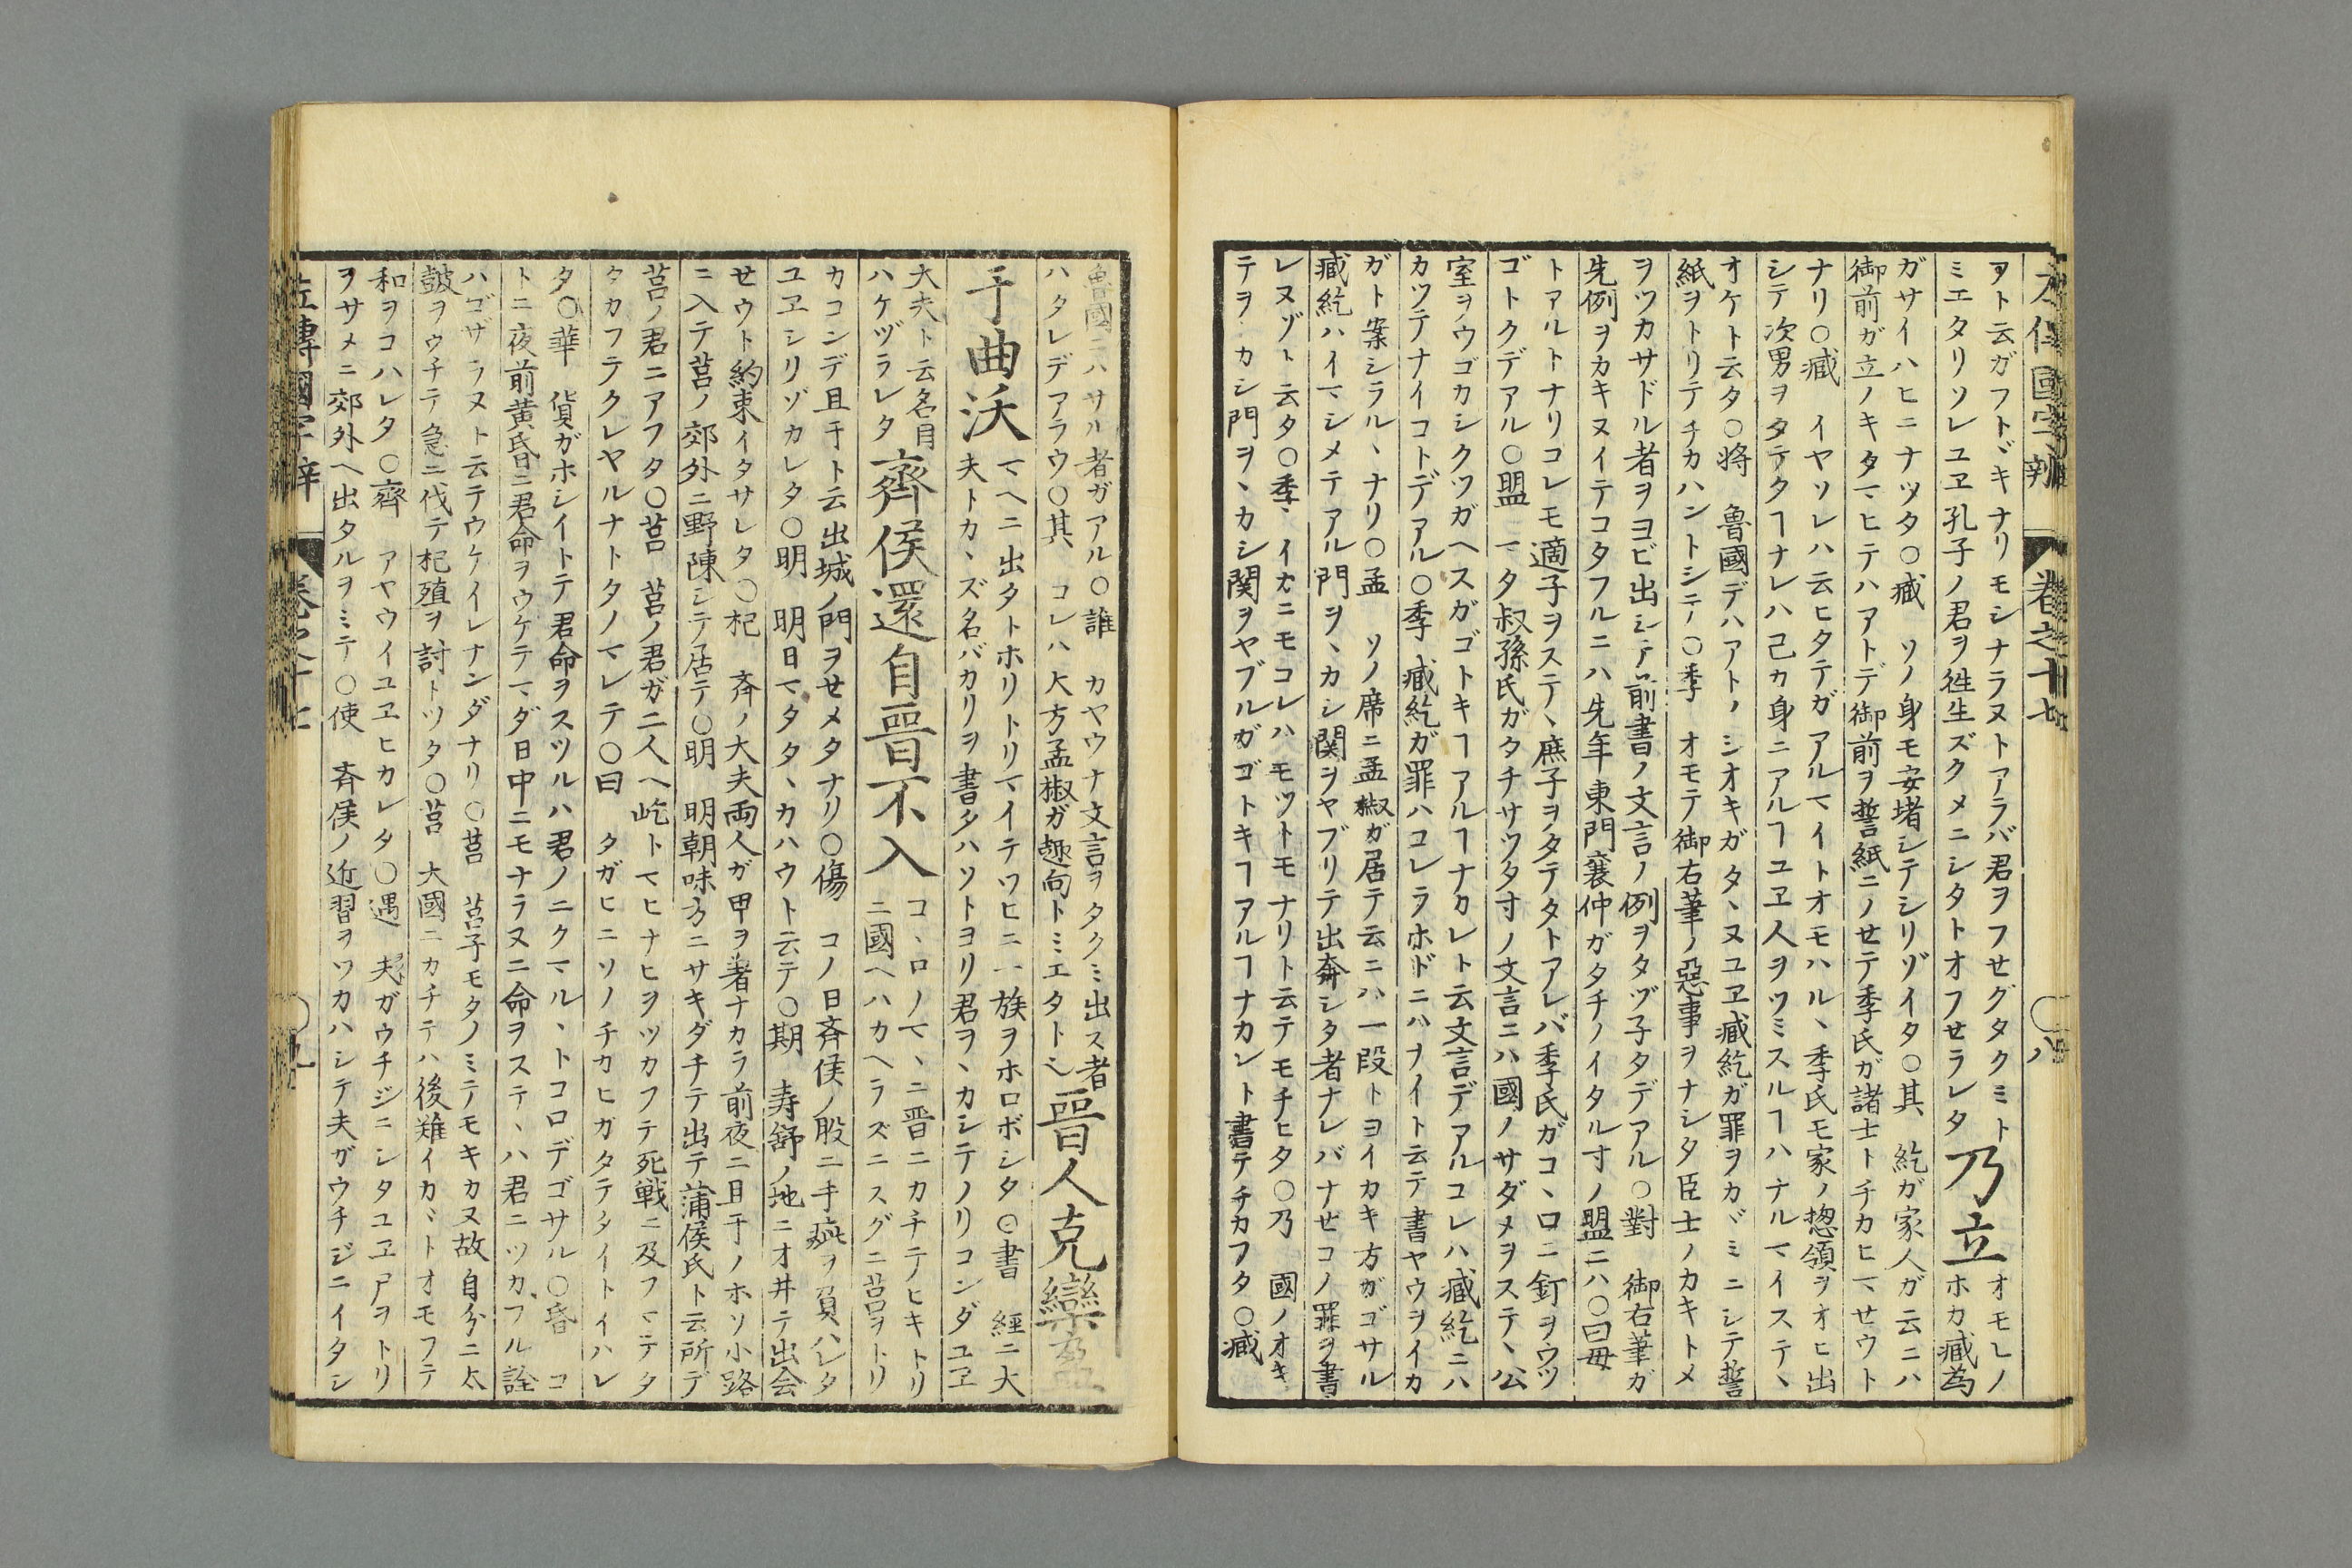 左傳國字辨 卷之十七 ○八
ヿト云ガフトヾキナリモシナラヌトアラバ君ヲフせグタクミト
ミエタリソレユヱ孔子ノ君ヲ徃生ズクメニシタトオフせラレタ
乃立
オモレノ
ホカ臧為
ガサイハヒニナツタ○臧 ソノ身モ安堵シテシリゾイタ○其 紇ガ家人ガ云ニハ
御前ガ立ノキタマヒテハアトデ御前ヲ誓紙ニノせテ季氏ガ諸士トチカヒマせウト
ナリ○臧 イヤソレハ云ヒタテガアルマイトオモハル、季氏モ家ノ惣領ヲオヒ出
シテ次男ヲタテタヿナレハ己カ身ニアルヿユヱ人ヲツミスルヿハナルマイステ、
オケト云タ○将 魯國デハアトノシオキガタ、ヌユヱ臧紇ガ罪ヲカヾミニシテ誓
紙ヲトリテチカハントシテ○季 オモテ御右筆ノ惡事ヲナシタ臣士ノカキトメ
ヲツカサドル者ヲヨビ出シテ前書ノ文言ノ例ヲタヅ子タデアル○對 御右筆ガ
先例ヲカキヌイテコタフルニハ先年東門襄仲ガタチノイタル寸ノ盟ニハ○曰毋
トアルトナリコレモ適子ヲステ、庶子ヲタテタトアレバ季氏ガコ、ロニ釘ヲウツ
ゴトクデアル○盟 マタ叔孫氏ガタチサツタ寸ノ文言ニハ國ノサダメヲステ、公
室ヲウゴカシクツガヘスガゴトキヿアルヿナカレト云文言デアルコレハ臧紇ニハ
カツテナイコトデアル○季 臧紇ガ罪ハコレラホドニハヲイト云テ書ヤウヲイカ
ガト案シラル、ナリ○孟 ソノ席ニ孟椒ガ居テ云ニハ一段トヨイカキ方ガゴサル
臧紇ハイマシメテアル門ヲ、カシ関ヲヤブリテ出奔シタ者ナレバナせコノ罪ヲ書
レヌゾト云タ○季、イカニモコレハモツトモナリト云テモチヒタ○乃 國ノオキ
テヲ、カシ門ヲ、カシ関ヲヤブルガゴトキヿアルヿナカレト書テチカフタ○臧
魯國ニハサル者ガアル○誰 カヤウナ文言ヲタクミ出ス者
ハタレデアラウ○其 コレハ大方孟椒ガ趣向トミエタトシ
晉人克欒盈
于曲沃
マヘニ出タトホリトリマイテツヒニ一族ヲホロボシタ○書 經ニ大
夫トカ、ズ名バカリヲ書タハソトヨリ君ヲ、カシテノリコンダユヱ
大夫ト云名目
ハケヅラレタ
齊侯還自晉不入
コ、ロノマ、ニ晋ニカチテノヒキトリ
ニ國ヘハカヘラズニスグニ莒ヲトリ
カコンデ且于ト云出城ノ門ヲせメタナリ○傷 コノ日斉侯ノ股ニ手疵ヲ負ハレタ
ユヱシリゾカレタ○明 明日マタタ、カハウト云テ○期 寿舒ノ地ニオ井テ出会
せウト約束イタサレタ○杞 斉ノ大夫両人ガ甲ヲ著ナカラ前夜ニ且于ノホソ小路
ニ入テ莒ノ郊外ニ野陳シテ居テ○明 明朝味方ニサキダチテ出テ蒲侯氏ト云所デ
莒ノ君ニアフタ○莒 莒ノ君ガ二人ヘ屹トマヒナヒヲツカフテ死戦ニ及フマテタ
タカフテクレヤルナトタノマレテ○曰 タガヒニソノチカヒガタテタイトイハレ
タ○華 貨ガホシイトテ君命ヲスツルハ君ノニクマル、トコロデゴサル○昏 コ
トニ夜前黄昏ニ君命ヲウケテマダ日中ニモナラヌニ命ヲステ、ハ君ニツカフル詮
ハゴザラヌト云テウケイレナンダナリ○莒 莒子モタノミテモキカヌ故自分ニ太
皷ヲウチテ急ニ伐テ杞殖ヲ討トツタ○莒 大國ニカチテハ後難イカヾトオモフテ
和ヲコハレタ○齊 アヤウイユヱヒカレタ○遇 夫ガウチジニシタユヱ尸ヲトリ
ヲサメニ郊外ヘ出タルヲミテ○使 斉侯ノ近習ヲツカハシテ夫ガウチジニイタシ
左傳國字辨 卷之十七 ○九